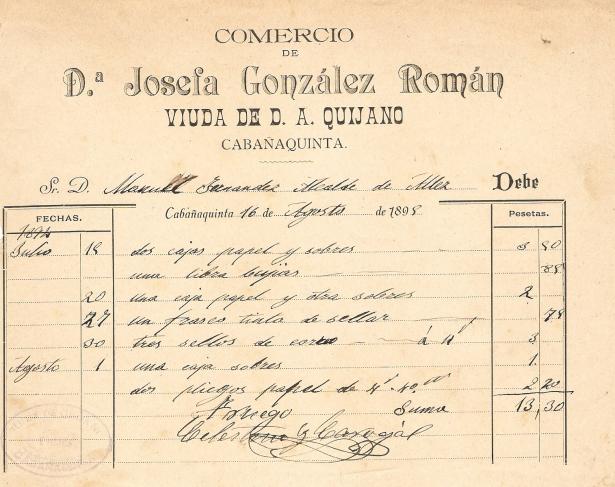 COMERCIO
DE
D.ª Josefa González Román
VIUDA DE D. A. QUIJANO
CABAÑAQUINTA.
Sr. D. Manuel Fernandez Alcalde de Aller Debe
Cabañaquinta 16 de Agosto de 1895
FECHAS. Pesetas.
Julio 18 dos cajas papel y sobres 3 80
una libra bujias
20 una caja papel y otra sobres 2
27 un frasco tinta de sellar 75
30 tres sellos de á 3
Agosto 1 una caja sobres 1
dos pliegos papel de 2 20
Suma 13,30
y